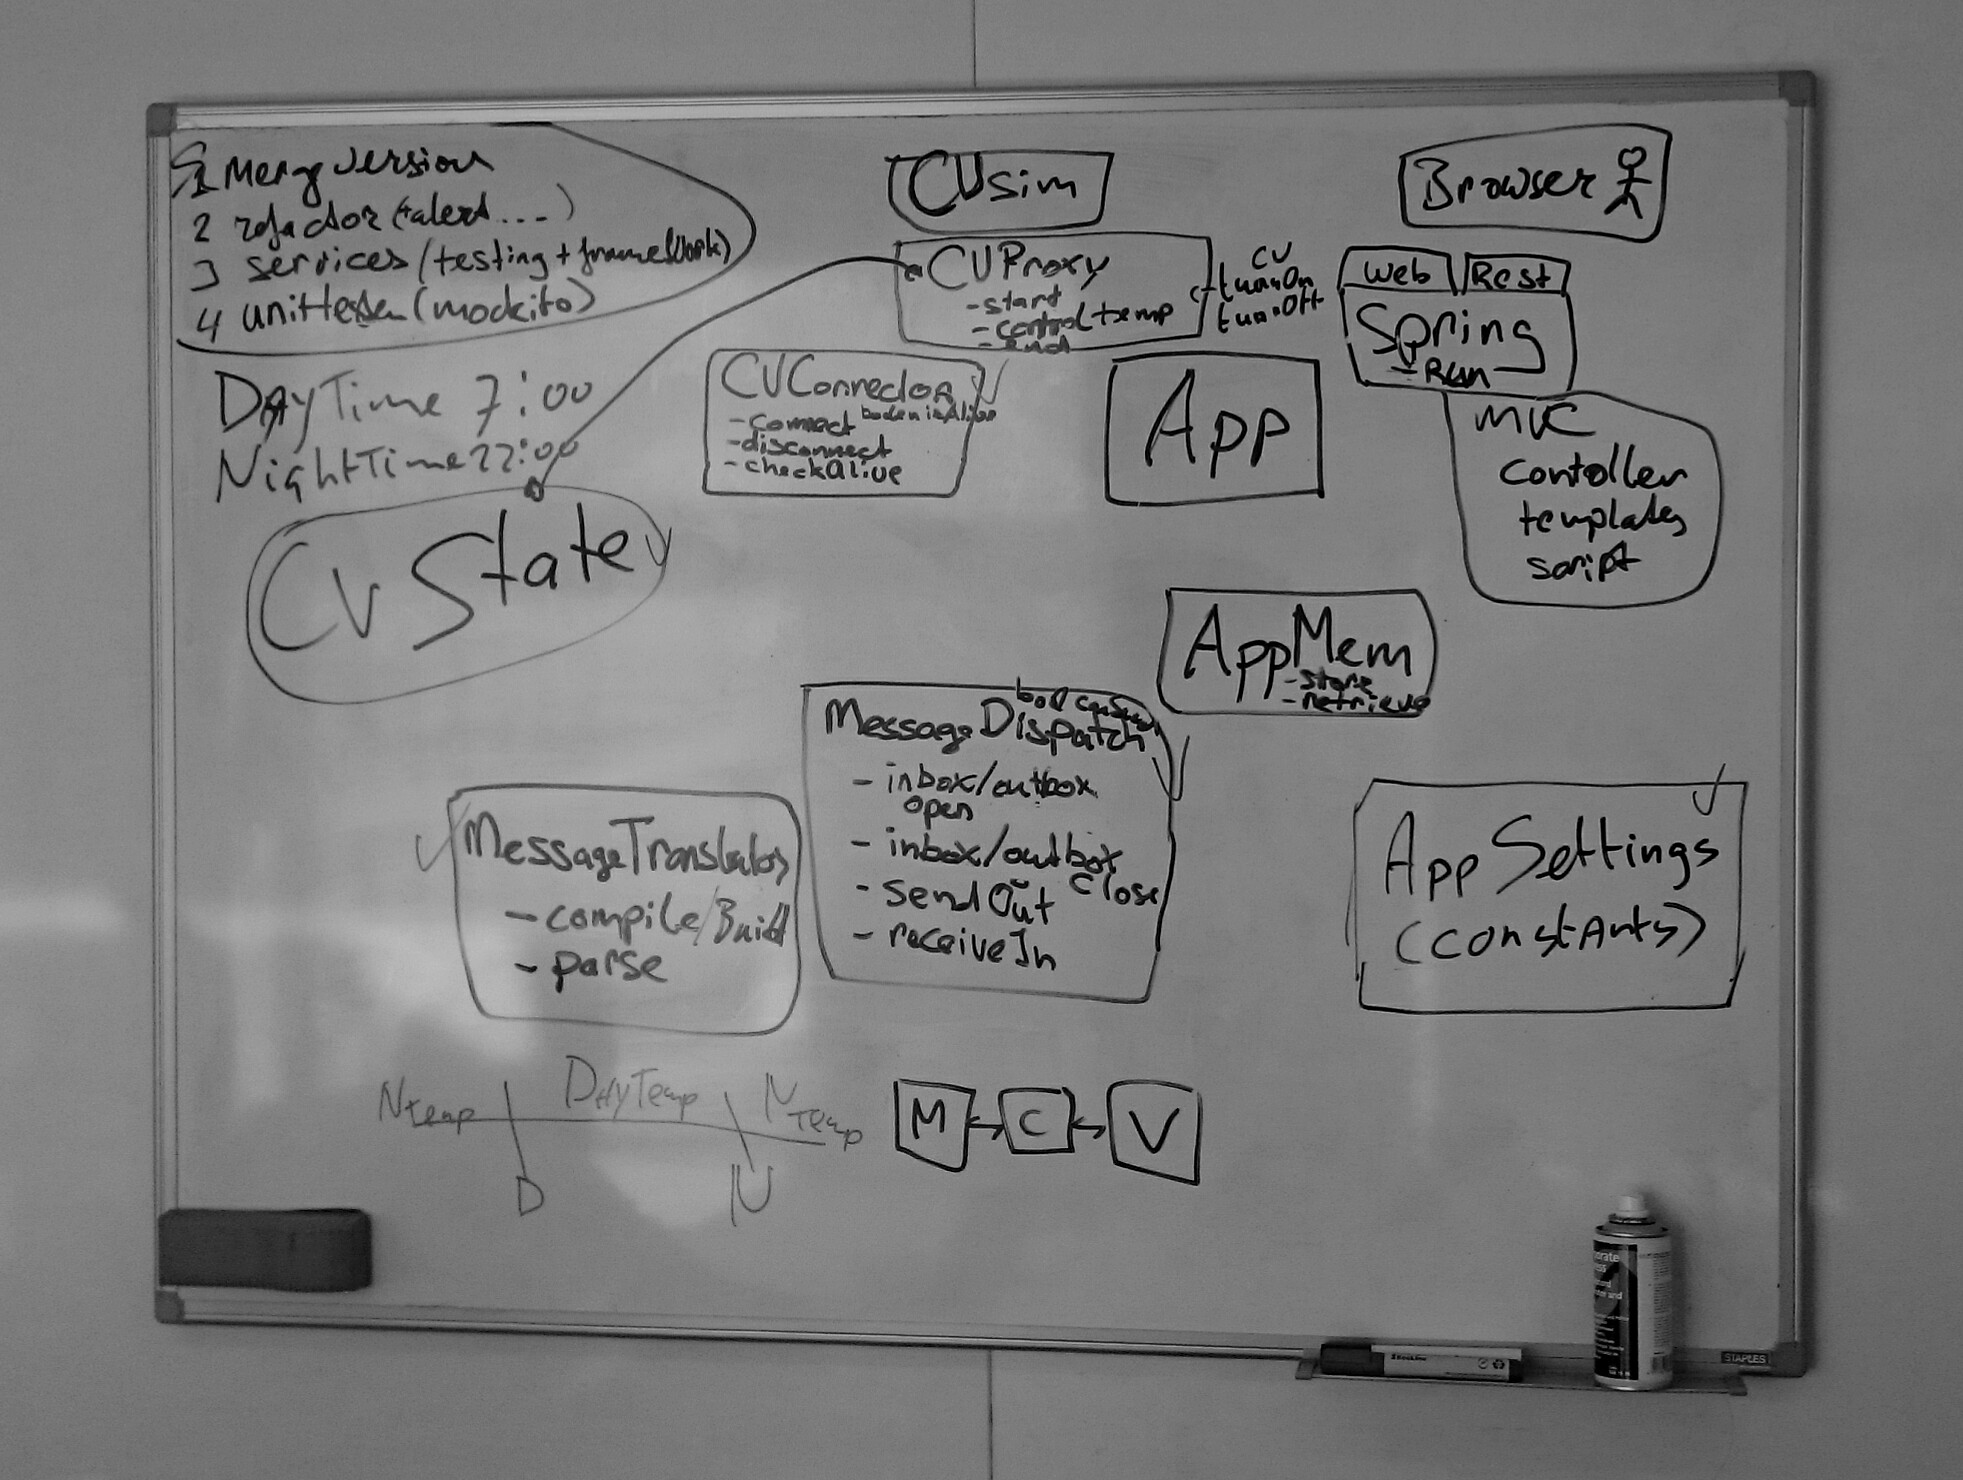 1 Merge version
2 refactor (+alert...)
3 services (testing + framework)
4 unittesten (mockito)
DAyTime 7:00
NightTime 22:00
CV State
CVsim
CVProxy
-start
-control temp
-end
CV
turnOn
turnOff
Browser
Web
Rest
Spring
-Run
CVConnector
-connect
-disconnect
-checkalive
App
MVC
contoller
templates
script
AppMem
-store
-retrieve
MessageDispatch
- inbox/outbox
open
- inbox/outbox
close
- sendOut
- receiveIn
MessageTranslator
- compile/Build
- parse
AppSettings
(constAnts)
Ntemp
DAyTemp
NTemp
D
N
M
C
V
STAPLES